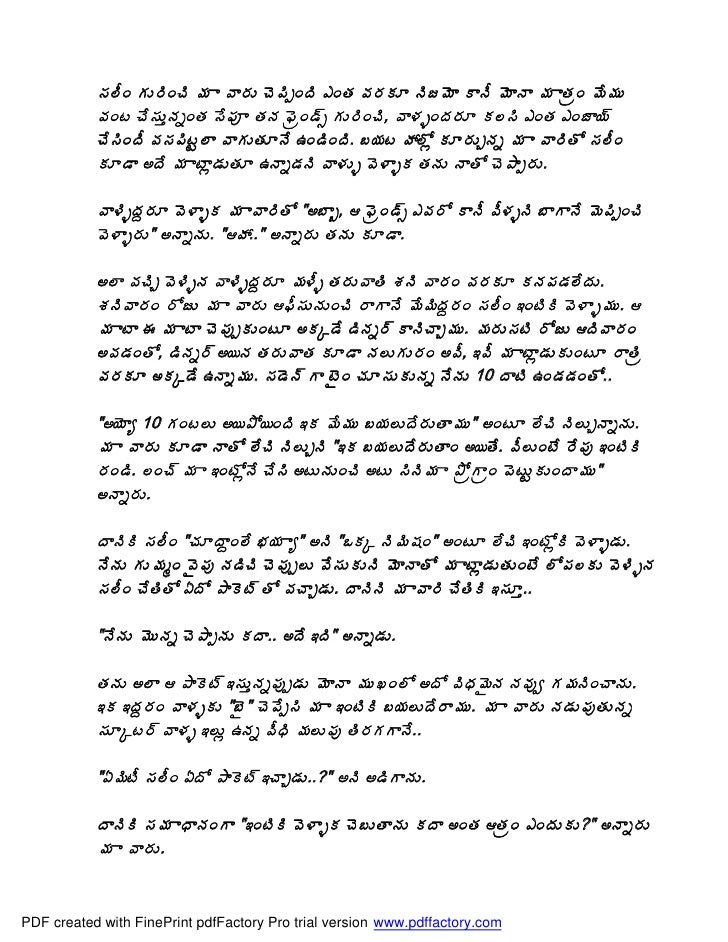 సలీం గురించి మా వారు చెప్పింది ఎంత వరకూ నిజమో కానీ మోనా మాత్రం మేము
వంట చేస్తున్నంత సేపూ తన ఫ్రెండ్స్ గురించి, వాళ్ళందరూ కలసి ఎంత ఎంజాయ్
చేసిందీ వసపిట్టలా వాగుతూనే ఉండింది. బయట హాల్లో కూర్చున్న మా వారితో సలీం
కూడా అదే మాట్లాడుతూ ఉన్నాడని వాళ్ళు వెళ్ళాక తను నాతో చెప్పారు.
వాళ్ళిద్దరూ వెళ్ళాక మావారితో "అబ్బా, ఆ ఫ్రెండ్స్ ఎవరో కానీ వీళ్ళని బాగానే మెప్పించి
వెళ్ళారు" అన్నాను. "ఆహా.." అన్నారు తను కూడా.
అలా వచ్చి వెళ్ళిన వాళ్ళిద్దరూ మళ్ళీ తరువాతి శని వారం వరకూ కనపడలేదు.
శనివారం రోజు మా వారు ఆఫీసునుంచి రాగానే మేమిద్దరం సలీం ఇంటికి వెళ్ళాము. ఆ
మాటా ఈ మాటా చెప్పుకుంటూ అక్కడే డిన్నర్ కానిచ్చాము. మరుసటి రోజు ఆదివారం
అవడంతో, డిన్నర్ అయిన తరువాత కూడా నలుగురం అవీ, ఇవీ మాట్లాడుకుంటూ రాత్రి
వరకూ అక్కడే ఉన్నాము. సడెన్ గా టైం చూసుకున్న నేను 10 దాటి ఉండడంతో..
"అయ్యో 10 గంటలు అయిపోయింది ఇక మేము బయలుదేరుతాము" అంటూ లేచి నిల్చున్నాను.
మా వారు కూడా నాతో లేచి నిల్చుని "ఇక బయలుదేరుతాం అయితే. వీలుంటే రేపు ఇంటికి
రండి. లంచ్ మా ఇంట్లోనే చేసి అటునుంచి అటు సినిమా ప్రోగ్రాం పెట్టుకుందాము"
అన్నారు.
దానికి సలీం "చూద్దాంలే భయ్యా" అని "ఒక్క నిమిషం" అంటూ లేచి ఇంట్లోకి వెళ్ళాడు.
నేను గుమ్మం వైపు నడిచి చెప్పులు వేసుకుని మోనాతో మాట్లాడుతుంటే లోపలకు వెళ్ళిన
సలీం చేతితో ఏదో పాకెట్ తో వచ్చాడు. దానిని మావారి చేతికి ఇస్తూ..
"నేను మొన్న చెప్పాను కదా.. అదే ఇది" అన్నాడు.
తను అలా ఆ పాకెట్ ఇస్తున్నప్పుడు మోనా ముఖంలో అదో విధమైన నవ్వు గమనించాను.
ఇక ఇద్దరం వాళ్ళకు "బై" చెప్పేసి మా ఇంటికి బయలుదేరాము. మా వారు నడుపుతున్న
స్కూటర్ వాళ్ళ ఇల్లు ఉన్న వీధి మలుపు తిరగగానే..
"ఏమిటీ సలీం ఏదో పాకెట్ ఇచ్చాడు..?" అని అడిగాను.
దానికి సమాధానంగా "ఇంటికి వెళ్ళాక చెబుతాను కదా అంత ఆత్రం ఎందుకు?" అన్నారు
మా వారు.
PDF created with FinePrint pdfFactory Pro trial version www.pdffactory.com